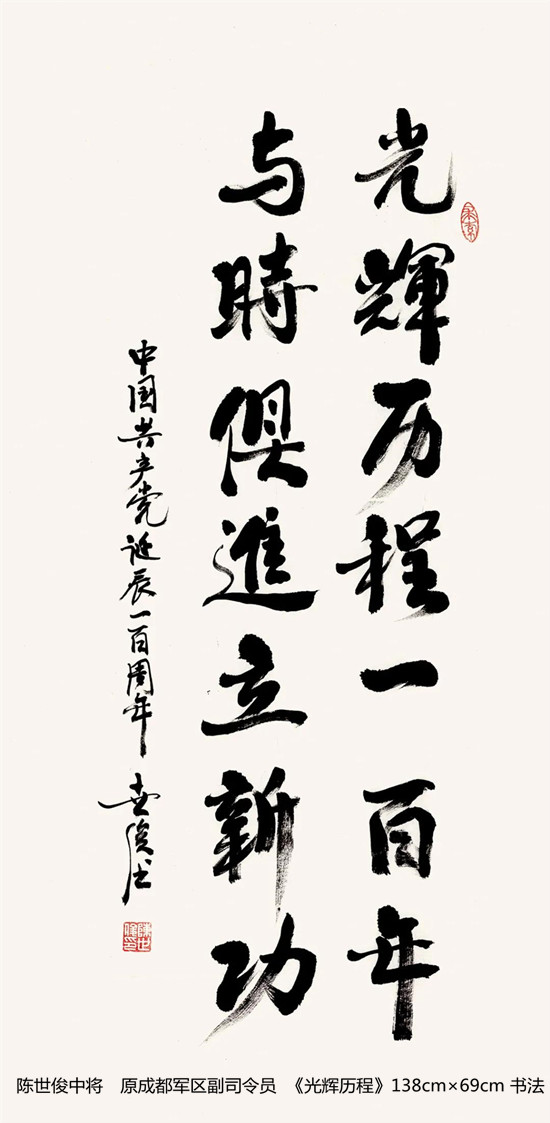 光輝历程一百年
与時俱進立新功
中国共产党诞辰一百周年
世俊书
陈世俊中将 原成都军区副司令员 《光辉历程》138cm×69cm 书法